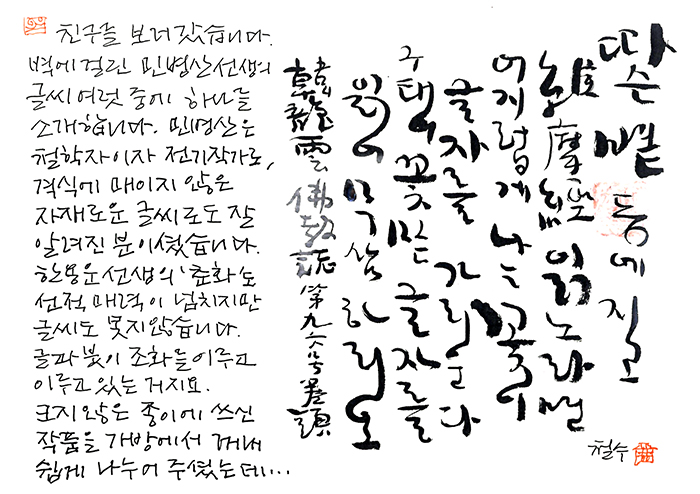 친구를 보러 갔습니다.
벽에 걸린 민병산선생의
글씨 여럿 중에 하나를
소개합니다. 민병산은
철학자이자 전기작가로,
격식에 매이지 않은
자재로운 글씨로도 잘
알려진 분이셨습니다.
한용운선생의 '춘화'도
선적 매력이 넘치지만
글씨도 못지않습니다.
글과 붓이 조화를 이루고
이루고 있는 거지요.
크지 않은 종이에 쓰신
작품을 가방에서 꺼내
쉽게 나누어 주셨는데...
따슨 볕 등에 지고
維摩經 읽노라면
어지럽게 나는 꽃이
글자를 가리운다
구태여 꽃 밑 글자를
읽어 무삼 하리오
韓龍雲 佛敎誌 第九六号 卷頭
철수